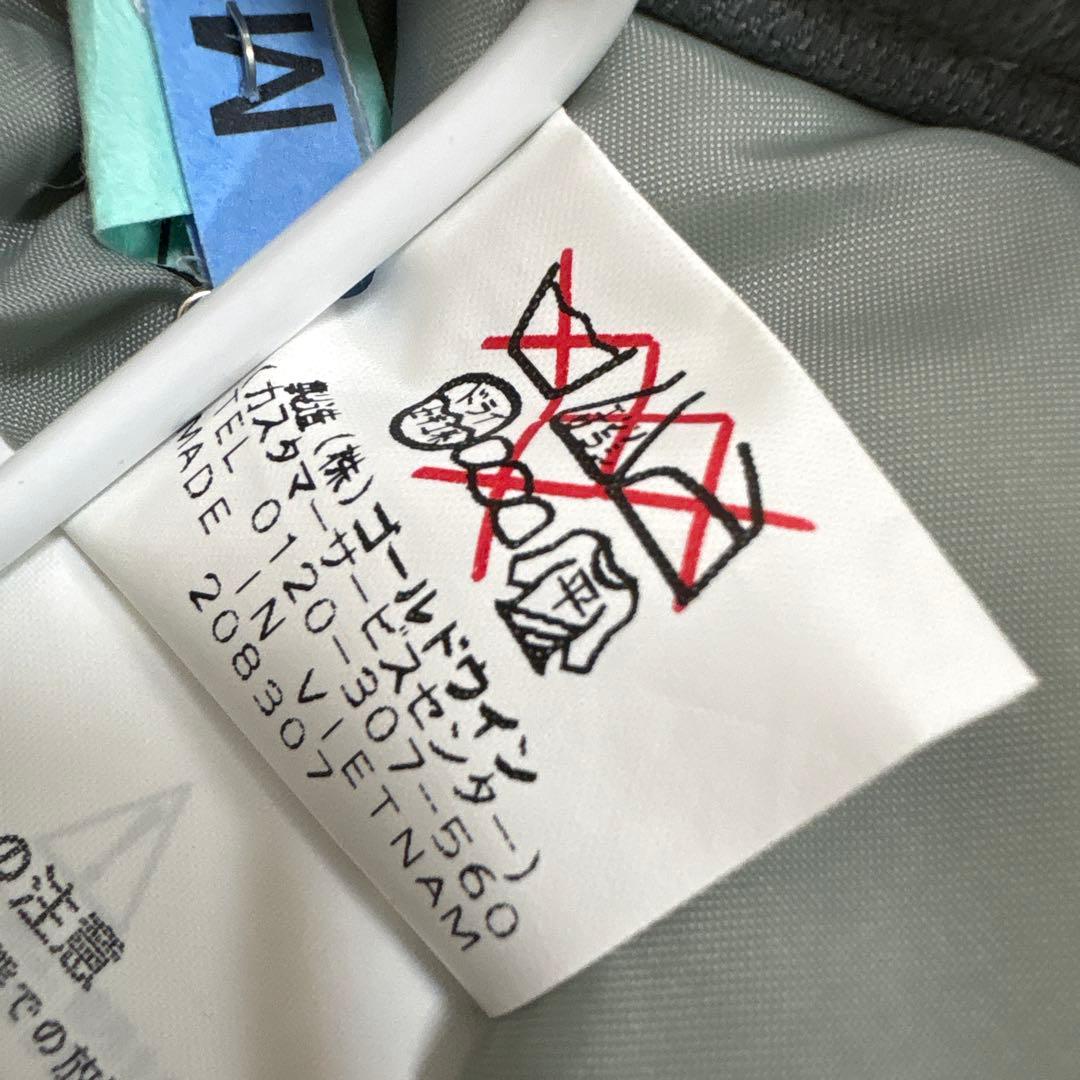 M
ドライ
セキユ系
エンソ
サラシ
平
製造 (株)ゴールドウイン
(カスタマーサービスセンター)
TEL 0120-307-560
MADE IN VIETNAM
208307
の注意